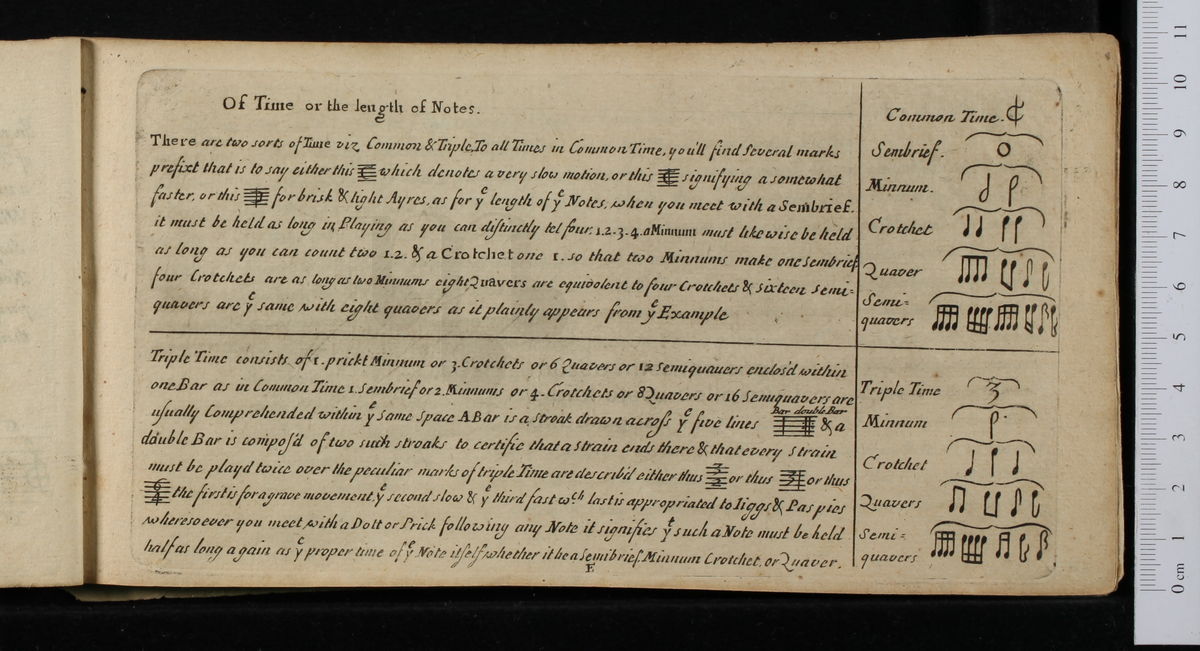 Of Time or the length of Notes.
There are two sorts of Time viz. Common & Triple, To all Times in Common Time, you'll find Several marks
prefixt that is to say either this which denotes a very slow motion, or this signifying a somewhat
faster, or this for brisk & light Ayres, as for yᵉ length of yᵉ Notes, when you meet with a Sembrief.
it must be held as long in Playing as you can distinctly tel four. 1.2.3.4. a Minnum must likewise be held
as long as you can count two 1.2. & a Crotchet one 1. so that two Minnums make one Sembrief
four Crotchets are as long as two Minnums eight Quavers are equivolent to four Crotchets & sixteen Semi=
quavers are yᵉ same with eight quavers as it plainly appears from yᵉ Example
Common Time.
Sembrief.
Minnum.
Crotchet
Quaver
Semi=
quavers
Triple Time consists of 1. prickt Minnum or 3. Crotchets or 6 Quavers or 12 Semiquavers enclos'd within
one Bar as in Common Time 1. Sembrief or 2. Minnums or 4. Crotchets or 8 Quavers or 16 Semiquavers are
usually Comprehended within yᵉ Same Space A Bar is a stroak drawn across yᵉ five lines Bar double Bar & a
double Bar is compos'd of two such stroaks to certifie that a Strain ends there & that every Strain
must be playd twice over the peculiar marks of triple Time are describ'd either thus 3/2 or thus 31 or thus
6/4 the first is for a grave movement yᵉ second slow & yᵉ third fast wᶜʰ last is appropriated to Iiggs & Paspies
wheresoever you meet with a Dott or Prick following any Note it signifies yᵗ such a Note must be held
half as long again as yᵉ proper time of yᵉ Note itself whether it be a Semibrief. Minnum Crotchet, or Quaver.
E
Triple Time 3
Minnum
Crotchet
Quavers
Semi=
quavers
0 cm 1 2 3 4 5 6 7 8 9 10 11